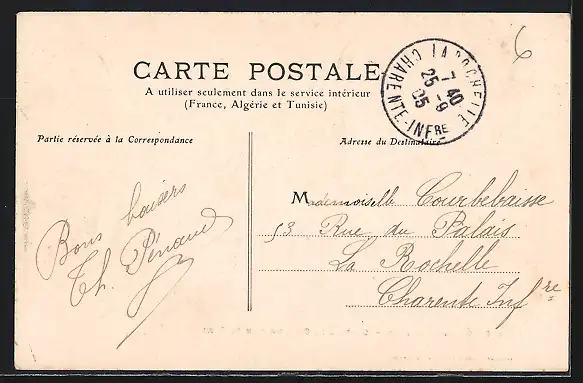 6
CARTE POSTALE
A utiliser seulement dans le service intérieur
(France, Algérie et Tunisie)
LA ROCHELLE
7 40
25 - 9
05
CHARENTE-INFRE
Partie réservée à la Correspondance
Adresse du Destinataire
Bons baisers
Th. Pénaud
Mademoiselle Courbebaisse
53 Rue du Palais
La Rochelle
Charente Infre